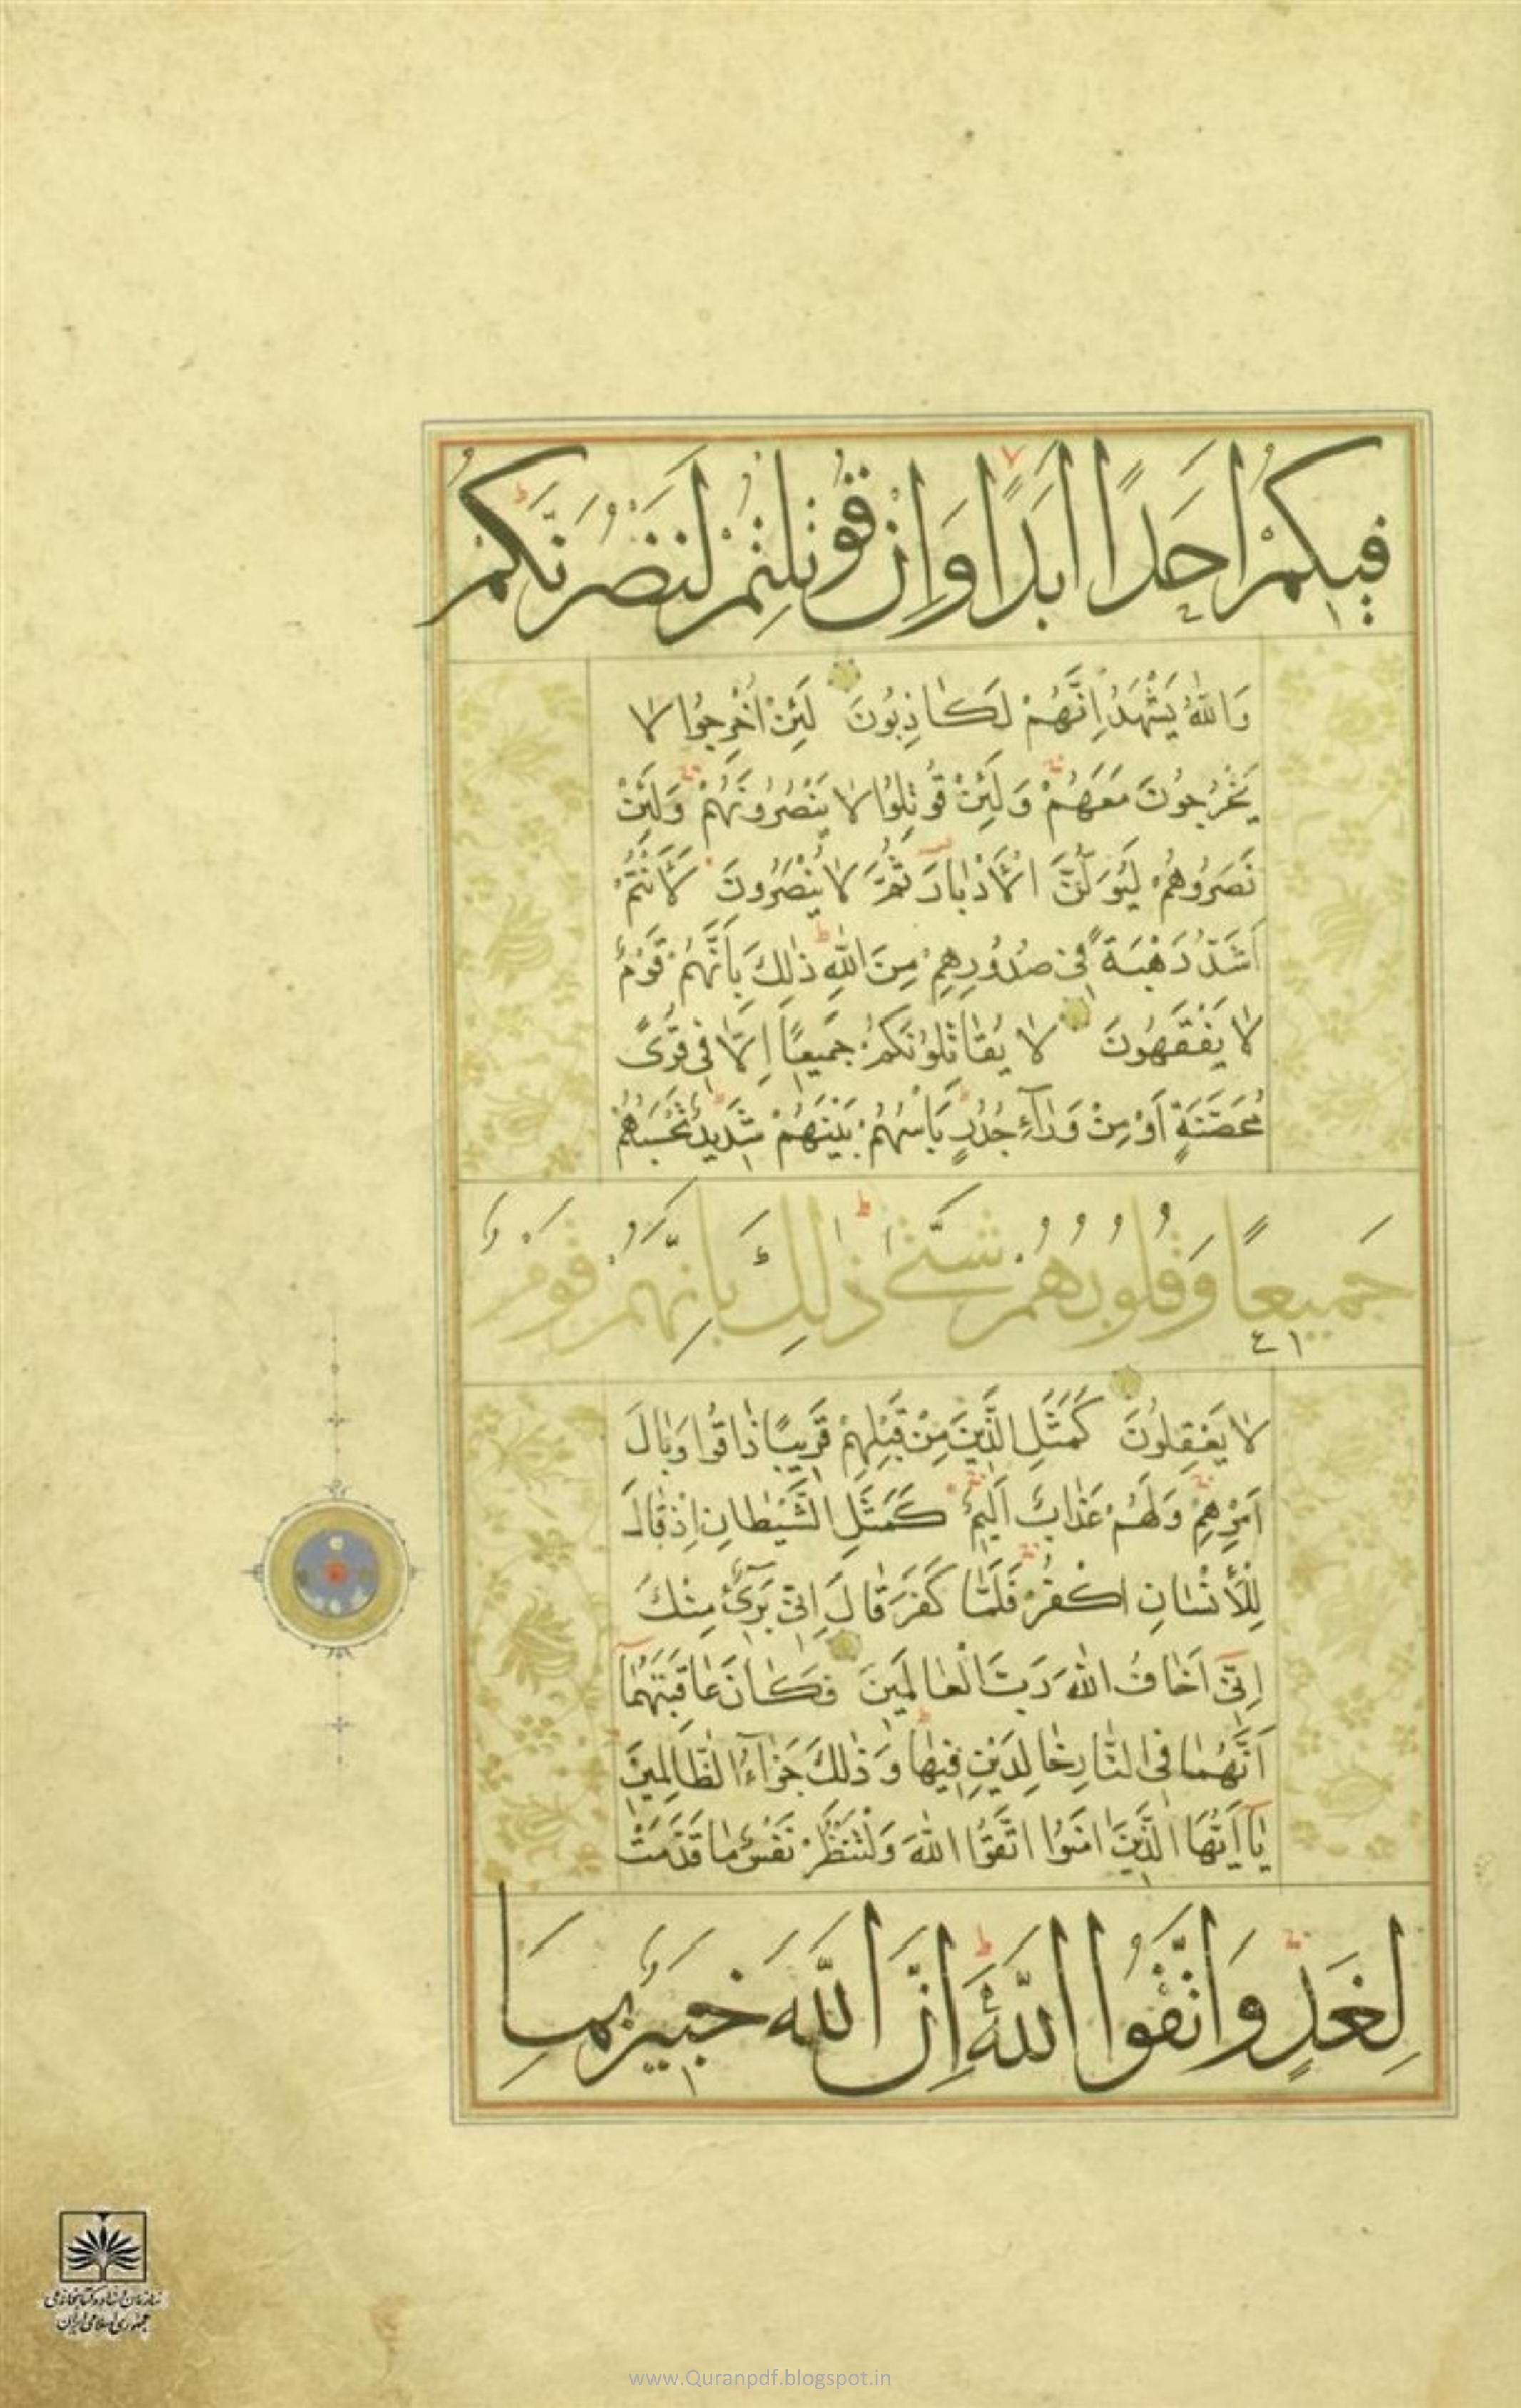 فِيكُمْ اَحَدًا اَبَدًا وَاِنْ قُوتِلْتُمْ لَنَنْصُرَنَّكُمْ
وَاللّٰهُ يَشْهَدُ اِنَّهُمْ لَكَاذِبُونَ لَئِنْ اُخْرِجُوا لَا
يَخْرُجُونَ مَعَهُمْ وَلَئِنْ قُوتِلُوا لَا يَنْصُرُونَهُمْ وَلَئِنْ
نَصَرُوهُمْ لَيُوَلُّنَّ الْاَدْبَارَ ثُمَّ لَا يُنْصَرُونَ لَاَنْتُمْ
اَشَدُّ رَهْبَةً فِي صُدُورِهِمْ مِنَ اللّٰهِ ذٰلِكَ بِاَنَّهُمْ قَوْمٌ
لَا يَفْقَهُونَ لَا يُقَاتِلُونَكُمْ جَمِيعًا اِلَّا فِي قُرًى
مُحَصَّنَةٍ اَوْ مِنْ وَرَآءِ جُدُرٍ بَأْسُهُمْ بَيْنَهُمْ شَدِيدٌ تَحْسَبُهُمْ
جَمِيعًا وَقُلُوبُهُمْ شَتّٰى ذٰلِكَ بِاَنَّهُمْ قَوْمٌ
لَا يَعْقِلُونَ كَمَثَلِ الَّذِينَ مِنْ قَبْلِهِمْ قَرِيبًا ذَاقُوا وَبَالَ
اَمْرِهِمْ وَلَهُمْ عَذَابٌ اَلِيمٌ كَمَثَلِ الشَّيْطَانِ اِذْ قَالَ
لِلْاِنْسَانِ اكْفُرْ فَلَمَّا كَفَرَ قَالَ اِنِّي بَرِيٓءٌ مِنْكَ
اِنِّيٓ اَخَافُ اللّٰهَ رَبَّ الْعَالَمِينَ فَكَانَ عَاقِبَتَهُمَآ
اَنَّهُمَا فِي النَّارِ خَالِدَيْنِ فِيهَا وَذٰلِكَ جَزَآءُ الظَّالِمِينَ
يَآ اَيُّهَا الَّذِينَ اٰمَنُوا اتَّقُوا اللّٰهَ وَلْتَنْظُرْ نَفْسٌ مَا قَدَّمَتْ
لِغَدٍ وَاتَّقُوا اللّٰهَ اِنَّ اللّٰهَ خَبِيرٌ بِمَا
سازمان اسناد و کتابخانه ملی
جمهوری اسلامی ایران
www.Quranpdf.blogspot.in